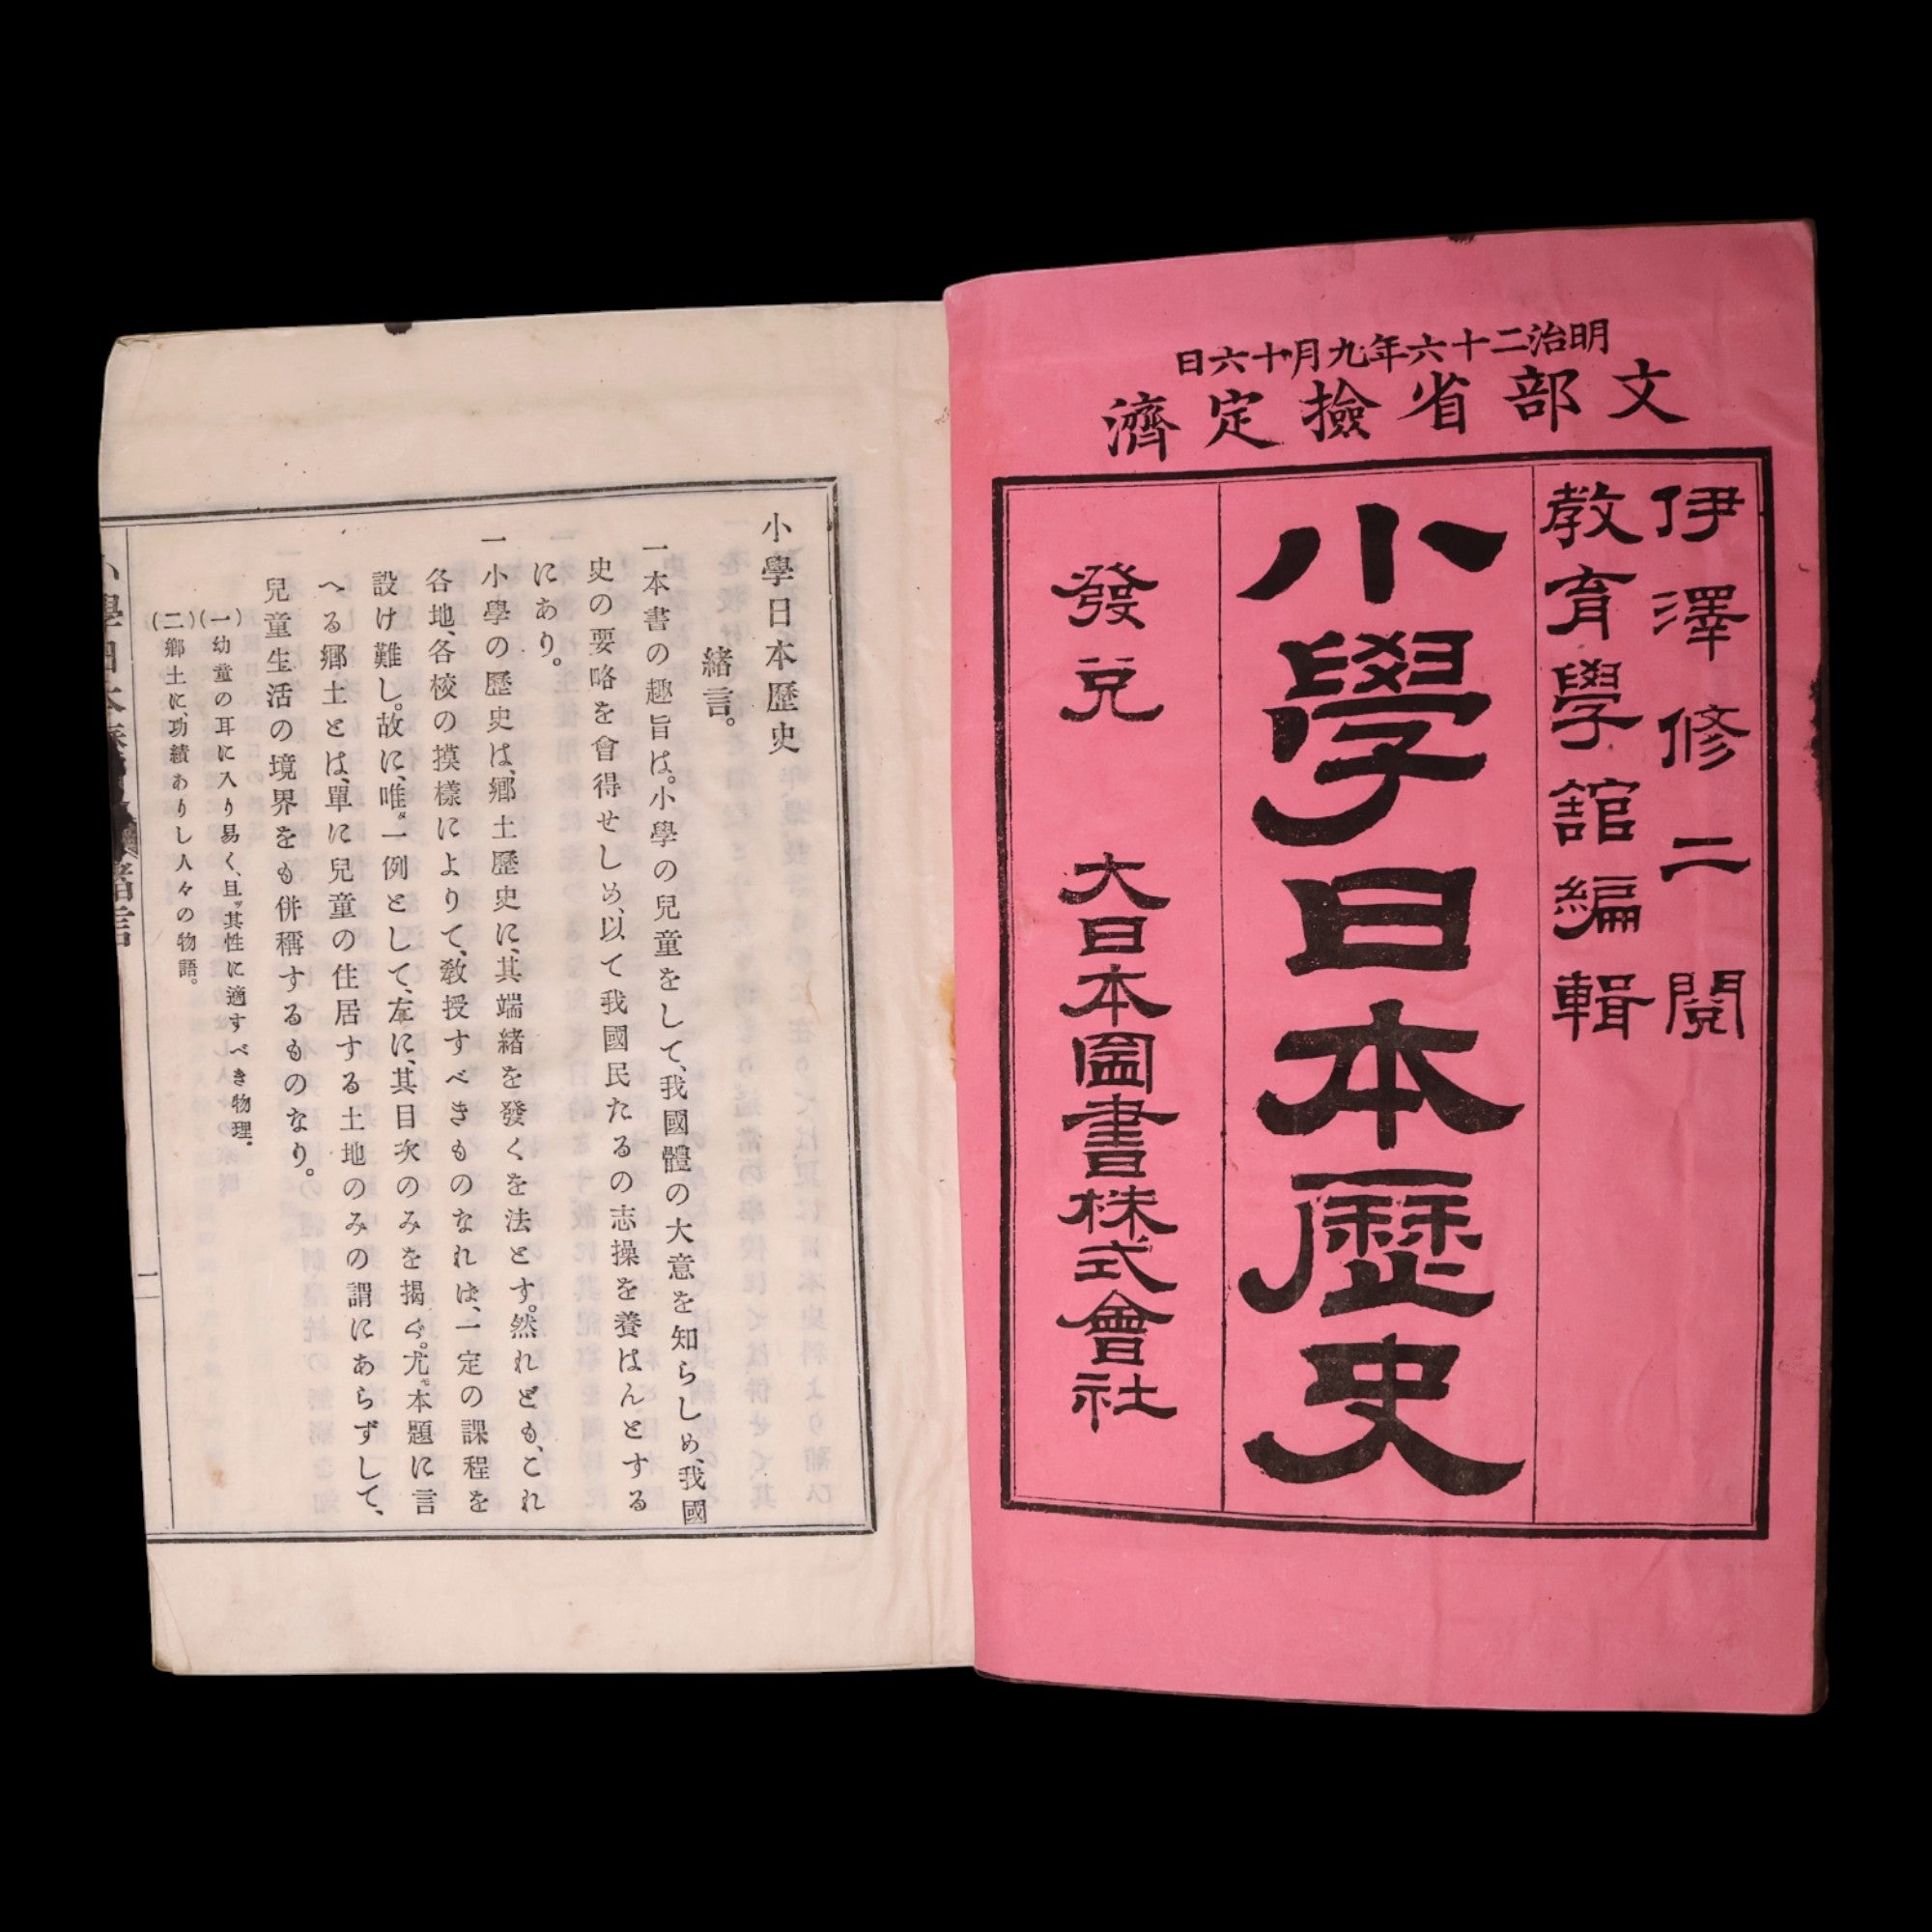 明治二十六年九月十六日
文部省撿定濟
伊澤修二閲
教育學館編輯
小學日本歷史
發兌　大日本圖書株式會社
小學日本歷史
緒言。
一本書の趣旨は。小學の兒童をして、我國體の大意を知らしめ、我國
史の要略を會得せしめ、以て我國民たるの志操を養はんとする
にあり。
一小學の歷史は、鄕土歷史に、其端緒を發くを法とす。然れども、これ
各地、各校の摸樣によりて、敎授すべきものなれは、一定の課程を
設け難し。故に、唯〻一例として、左に、其目次のみを揭ぐ。尤〻本題に言
へる鄕土とは、單に兒童の住居する土地のみの謂にあらずして、
兒童生活の境界をも併稱するものなり。
(一)幼童の耳に入り易く、且ッ其性に適すべき物理。
(二)鄕土に、功績ありし人々の物語。
緒言
一